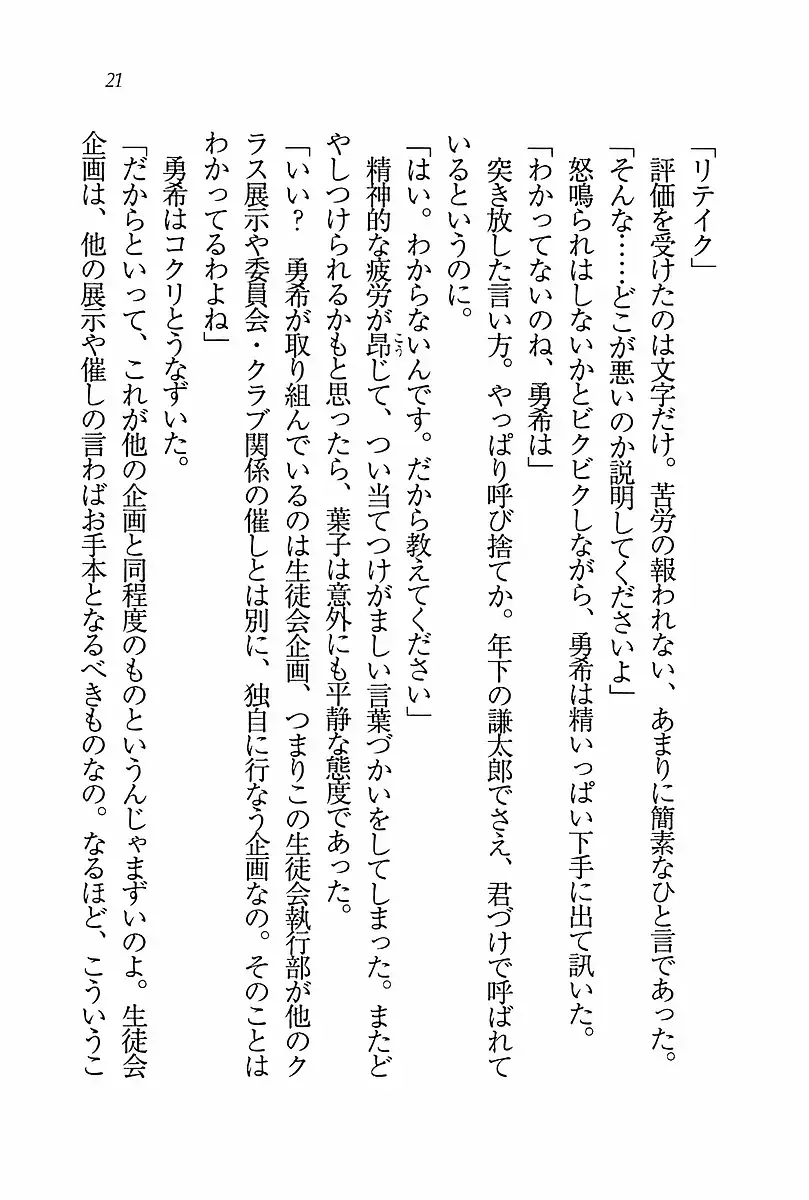 21
「リテイク」
　評価を受けたのは文字だけ。苦労の報われない、あまりに簡素なひと言であった。
「そんな……どこが悪いのか説明してくださいよ」
　怒鳴られはしないかとビクビクしながら、勇希は精いっぱい下手に出て訊いた。
「わかってないのね、勇希は」
　突き放した言い方。やっぱり呼び捨てか。年下の謙太郎でさえ、君づけで呼ばれて
いるというのに。
「はい。わからないんです。だから教えてください」
　精神的な疲労が昂こうじて、つい当てつけがましい言葉づかいをしてしまった。またど
やしつけられるかもと思ったら、葉子は意外にも平静な態度であった。
「いい？　勇希が取り組んでいるのは生徒会企画、つまりこの生徒会執行部が他のク
ラス展示や委員会・クラブ関係の催しとは別に、独自に行なう企画なの。そのことは
わかってるわよね」
　勇希はコクリとうなずいた。
「だからといって、これが他の企画と同程度のものというんじゃまずいのよ。生徒会
企画は、他の展示や催しの言わばお手本となるべきものなの。なるほど、こういうこ